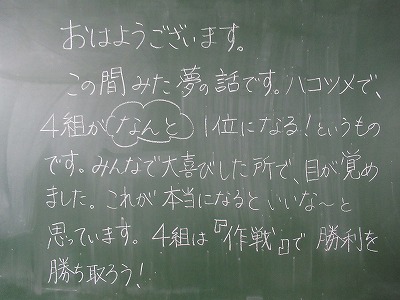 おはようございます。
この間みた夢の話です。ハコツメで、
4組がなんと1位になる!というもの
です。みんなで大喜びした所で、目が覚め
ました。これが本当になるといいな〜と
思っています。4組は『作戦』で勝利を
勝ち取ろう!